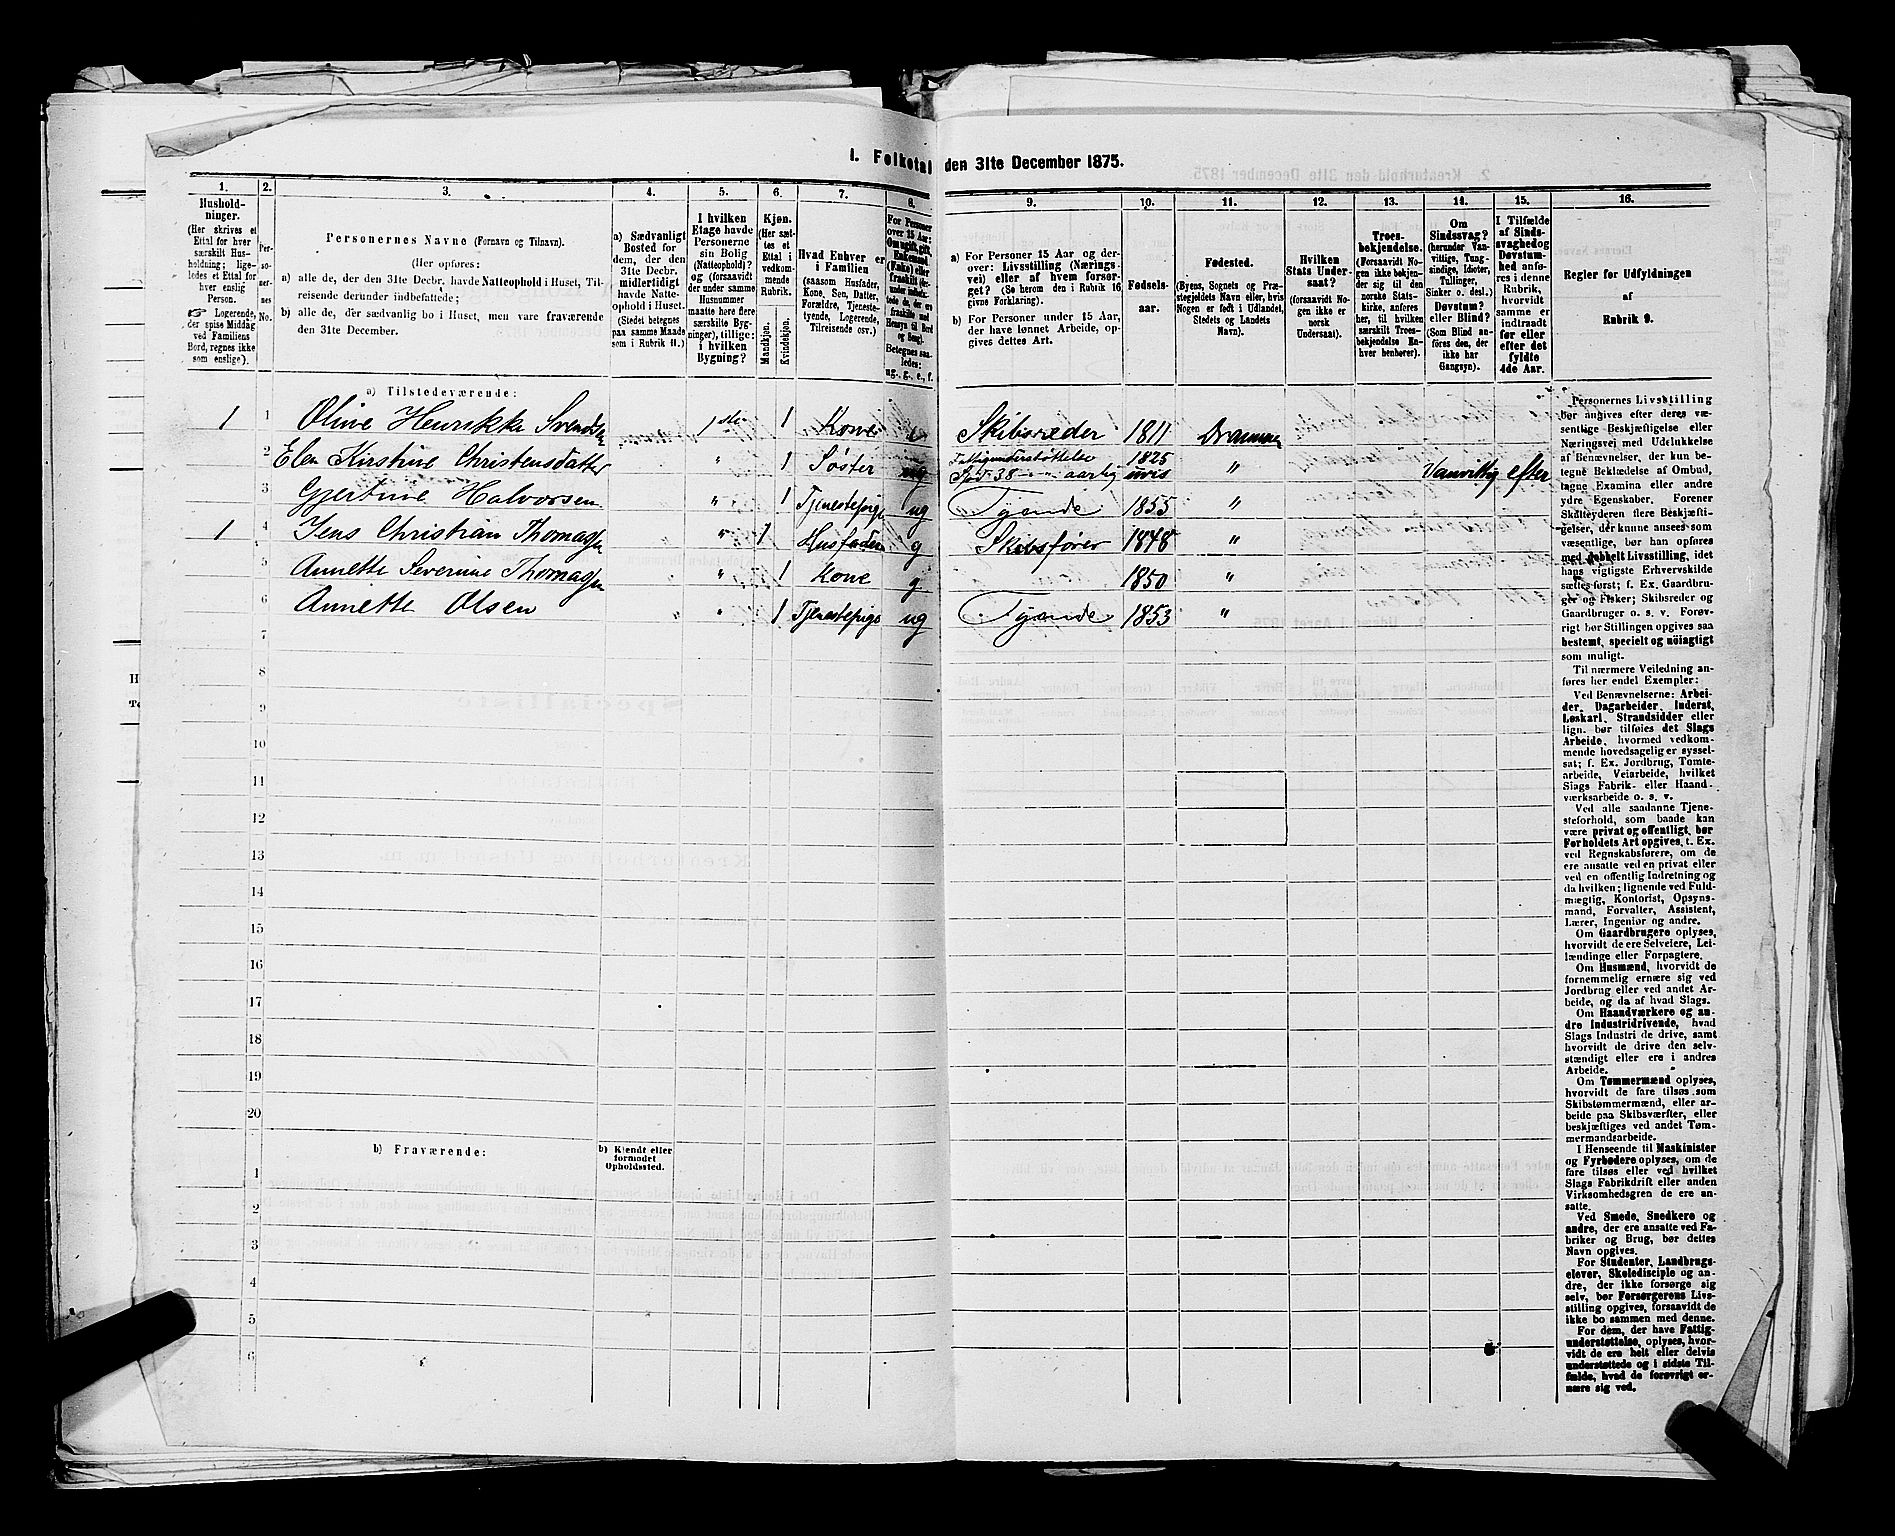 1. Folketal den 31te December 1875.
1. 2. 3. 4. 5. 6. 7. 8. 9. 10. 11. 12. 13. 14. 15. 16.
Husholdninger.
(Her skrives et
Ettal for hver
særskilt Husholdning;
ligeledes et Ettal for
hver enslig
Person.
☞ Logerende,
der spise Middag
ved Familiens
Bord, regnes ikke
som enslige).
Personernes No.
Personernes Navne (Fornavn og Tilnavn).
(Her opføres:
a) alle de, der den 31te Decbr. havde Natteophold i Huset, Tilreisende derunder indbefattede;
b) alle de, der sædvanlig bo i Huset, men vare fraværende
den 31te December.
a) Sædvanligt
Bosted for
dem, der den
31te Decbr.
midlertidigt
havde Natteophold
i Huset.
(Stedet betegnes
paa samme Maade
som i Rubrik 11.)
I hvilken
Etage havde
Personerne
sin Bolig
(Natteophold)?
og (forsaavidt
der under samme
Husnummer
maatte høre flere
særskilte Bygninger), tillige:
i hvilken
Bygning?
Kjøn.
(Her sættes et
Ettal i
vedkommende
Rubrik.
Mandkjøn.
Kvindekjøn.
Hvad Enhver er
i Familien
(saasom Husfader,
Kone, Søn, Datter,
Forældre, Tjenestetyende, Logerende,
Tilreisende osv.)
a) For Personer 15 Aar og derover: Livsstilling (Næringsvei) eller af hvem forsørget? (Se herom den i Rubrik 16
givne Forklaring).
b) For Personer under 15 Aar,
der have lønnet Arbeide, opgives dettes Art.
Fødselsaar.
Fødested.
(Byens, Sognets og Præstegjeldets Navn eller, hvis
Nogen er født i Udlandet,
Stedets og Landets
Navn).
Hvilken
Stats Undersaat?
(forsaavidt Nogen ikke er
norsk
Undersaat).
Troesbekjendelse.
(Forsaavidt Nogen ikke bekjender sig til den
norske Statskirke, anføres
her, til hvilken
særskilt Troesbekjendelse Enhver henhører).
Om
Sindssvag?
(herunder Vanvittige, Tungsindige, Idioter,
Tullinger,
Sinker o. desl.)
Døvstum?
eller Blind?
(Som Blind anføres den, der
ikke har
Gangsyn).
I Tilfælde
af Sindssvaghed og
Døvstumhed anføres i denne
Rubrik,
hvorvidt
samme er
indtraadt
før eller
efter det
fyldte
4de Aar.
Regler for Udfyldningen
af
Rubrik 9.
a) Tilstedeværende:
1 1 Oline Henrikke Svendsen 1ste 1 Kone e Skibsreder 1811 Drammen
2 Elen Kirstine Christensdatter " 1 Søster ug Fattigunderstøttelse Spd. 38 aarlig 1825 uvis " Vanvittig efter
3 Gjertine Halvorsen " 1 Tjenestepige ug Tyende 1855 "
1 4 Jens Christian Thomassen " 1 Husfader g Skibsfører 1848 "
5 Annette Severine Thomassen " 1 Kone g 1850 "
6 Annette Olsen " 1 Tjenestepige ug Tyende 1853 "
7
8
9
10
11
12
13
14
15
16
17
18
19
20
b) Fraværende:
b) Kjendt eller
formodet
Opholdssted.
1
2
3
4
5
6
Personernes Livsstilling
bør angives efter deres væsentlige Beskjæftigelse eller
Næringsvei med Udelukkelse
af Benævnelser, der kun betegne Beklædelse af Ombud,
tagne Examina eller andre
ydre Egenskaber. Forener
Skatteyderen flere Beskjæftigelser, der kunne ansees som
væsentlige, bør han opføres
med dobbelt Livsstilling, idet
hans vigtigste Erhvervskilde
sættes først; f. Ex. Gaardbruger og Fisker; Skibsreder og
Gaardbruger o. s. v. Forøvrigt bør Stillingen opgives saa
bestemt, specielt og nøiagtigt
som muligt.
Til nærmere Veiledning anføres her endel Exempler:
Ved Benævnelserne: Arbeider, Dagarbeider, Inderst,
Løskarl, Strandsidder eller
lign. bør tilføies det Slags
Arbeide, hvormed vedkommende hovedsagelig er sysselsat; f. Ex. Jordbrug, Tomtearbeide, Veiarbeide, hvilket
Slags Fabrik- eller Haandværksarbeide o. s. v.
Ved alle saadanne Tjenesteforhold, som baade kan
være privat og offentligt, bør
Forholdets Art opgives, t. Ex.
ved Regnskabsførere, om de
ere ansatte ved en privat eller
ved en offentlig Indretning og
da hvilken; lignende ved Fuldmægtig, Kontorist, Opsynsmand, Forvalter, Assistent,
Lærer, Ingeniør og andre.
Om Gaardbrugere oplyses,
hvorvidt de ere Selveiere, Leilændinge eller Forpagtere.
Om Husmænd, hvorvidt de
fornemmelig ernære sig ved
Jordbrug eller ved andet Arbeide, og da af hvad Slags.
Om Haandværkere og andre Industridrivende, hvad
Slags Industri de drive, samt
hvorvidt de drive den selvstændigt eller ere i andres
Arbeide.
Om Tømmermænd oplyses,
hvorvidt de fare tilsøs som
Skibstømmermænd, eller arbeide paa Skibsværfter, eller
beskjæftiges ved andet Tømmermandsarbeide.
I Henseende til Maskinister
og Fyrbødere oplyses, om de
fare tilsøs eller ved hvilket
Slags Fabrikdrift eller anden
Virksomhedsgren de ere ansatte.
Ved Smede, Snedkere og
andre, der ere ansatte ved Fabriker og Brug, bør dettes
Navn opgives.
For Studenter, Landbrugselever, Skoledisciple og andre, der ikke forsørge sig
selv, bør Forsørgerens Livsstilling opgives, forsaavidt de
ikke bo sammen med denne.
For dem, der have Fattigunderstøttelse, oplyses, hvorvidt de ere helt eller delvis
understøttede og i sidste Tilfælde, hvad de forøvrigt ernære sig ved.